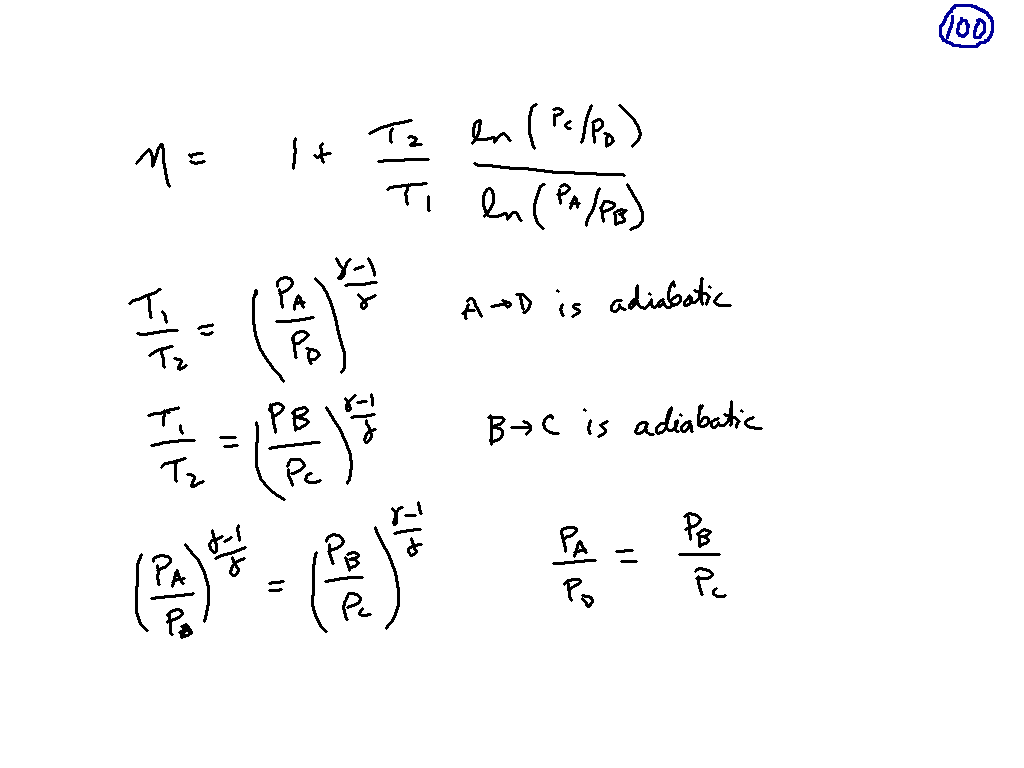 100
η = 1 + T₂/T₁ ln(P_C/P_D)/ln(P_A/P_B)
T₁/T₂ = (P_A/P_D)^((γ-1)/γ) A→D is adiabatic
T₁/T₂ = (P_B/P_C)^((γ-1)/γ) B→C is adiabatic
(P_A/P_D)^((γ-1)/γ) = (P_B/P_C)^((γ-1)/γ) P_A/P_D = P_B/P_C